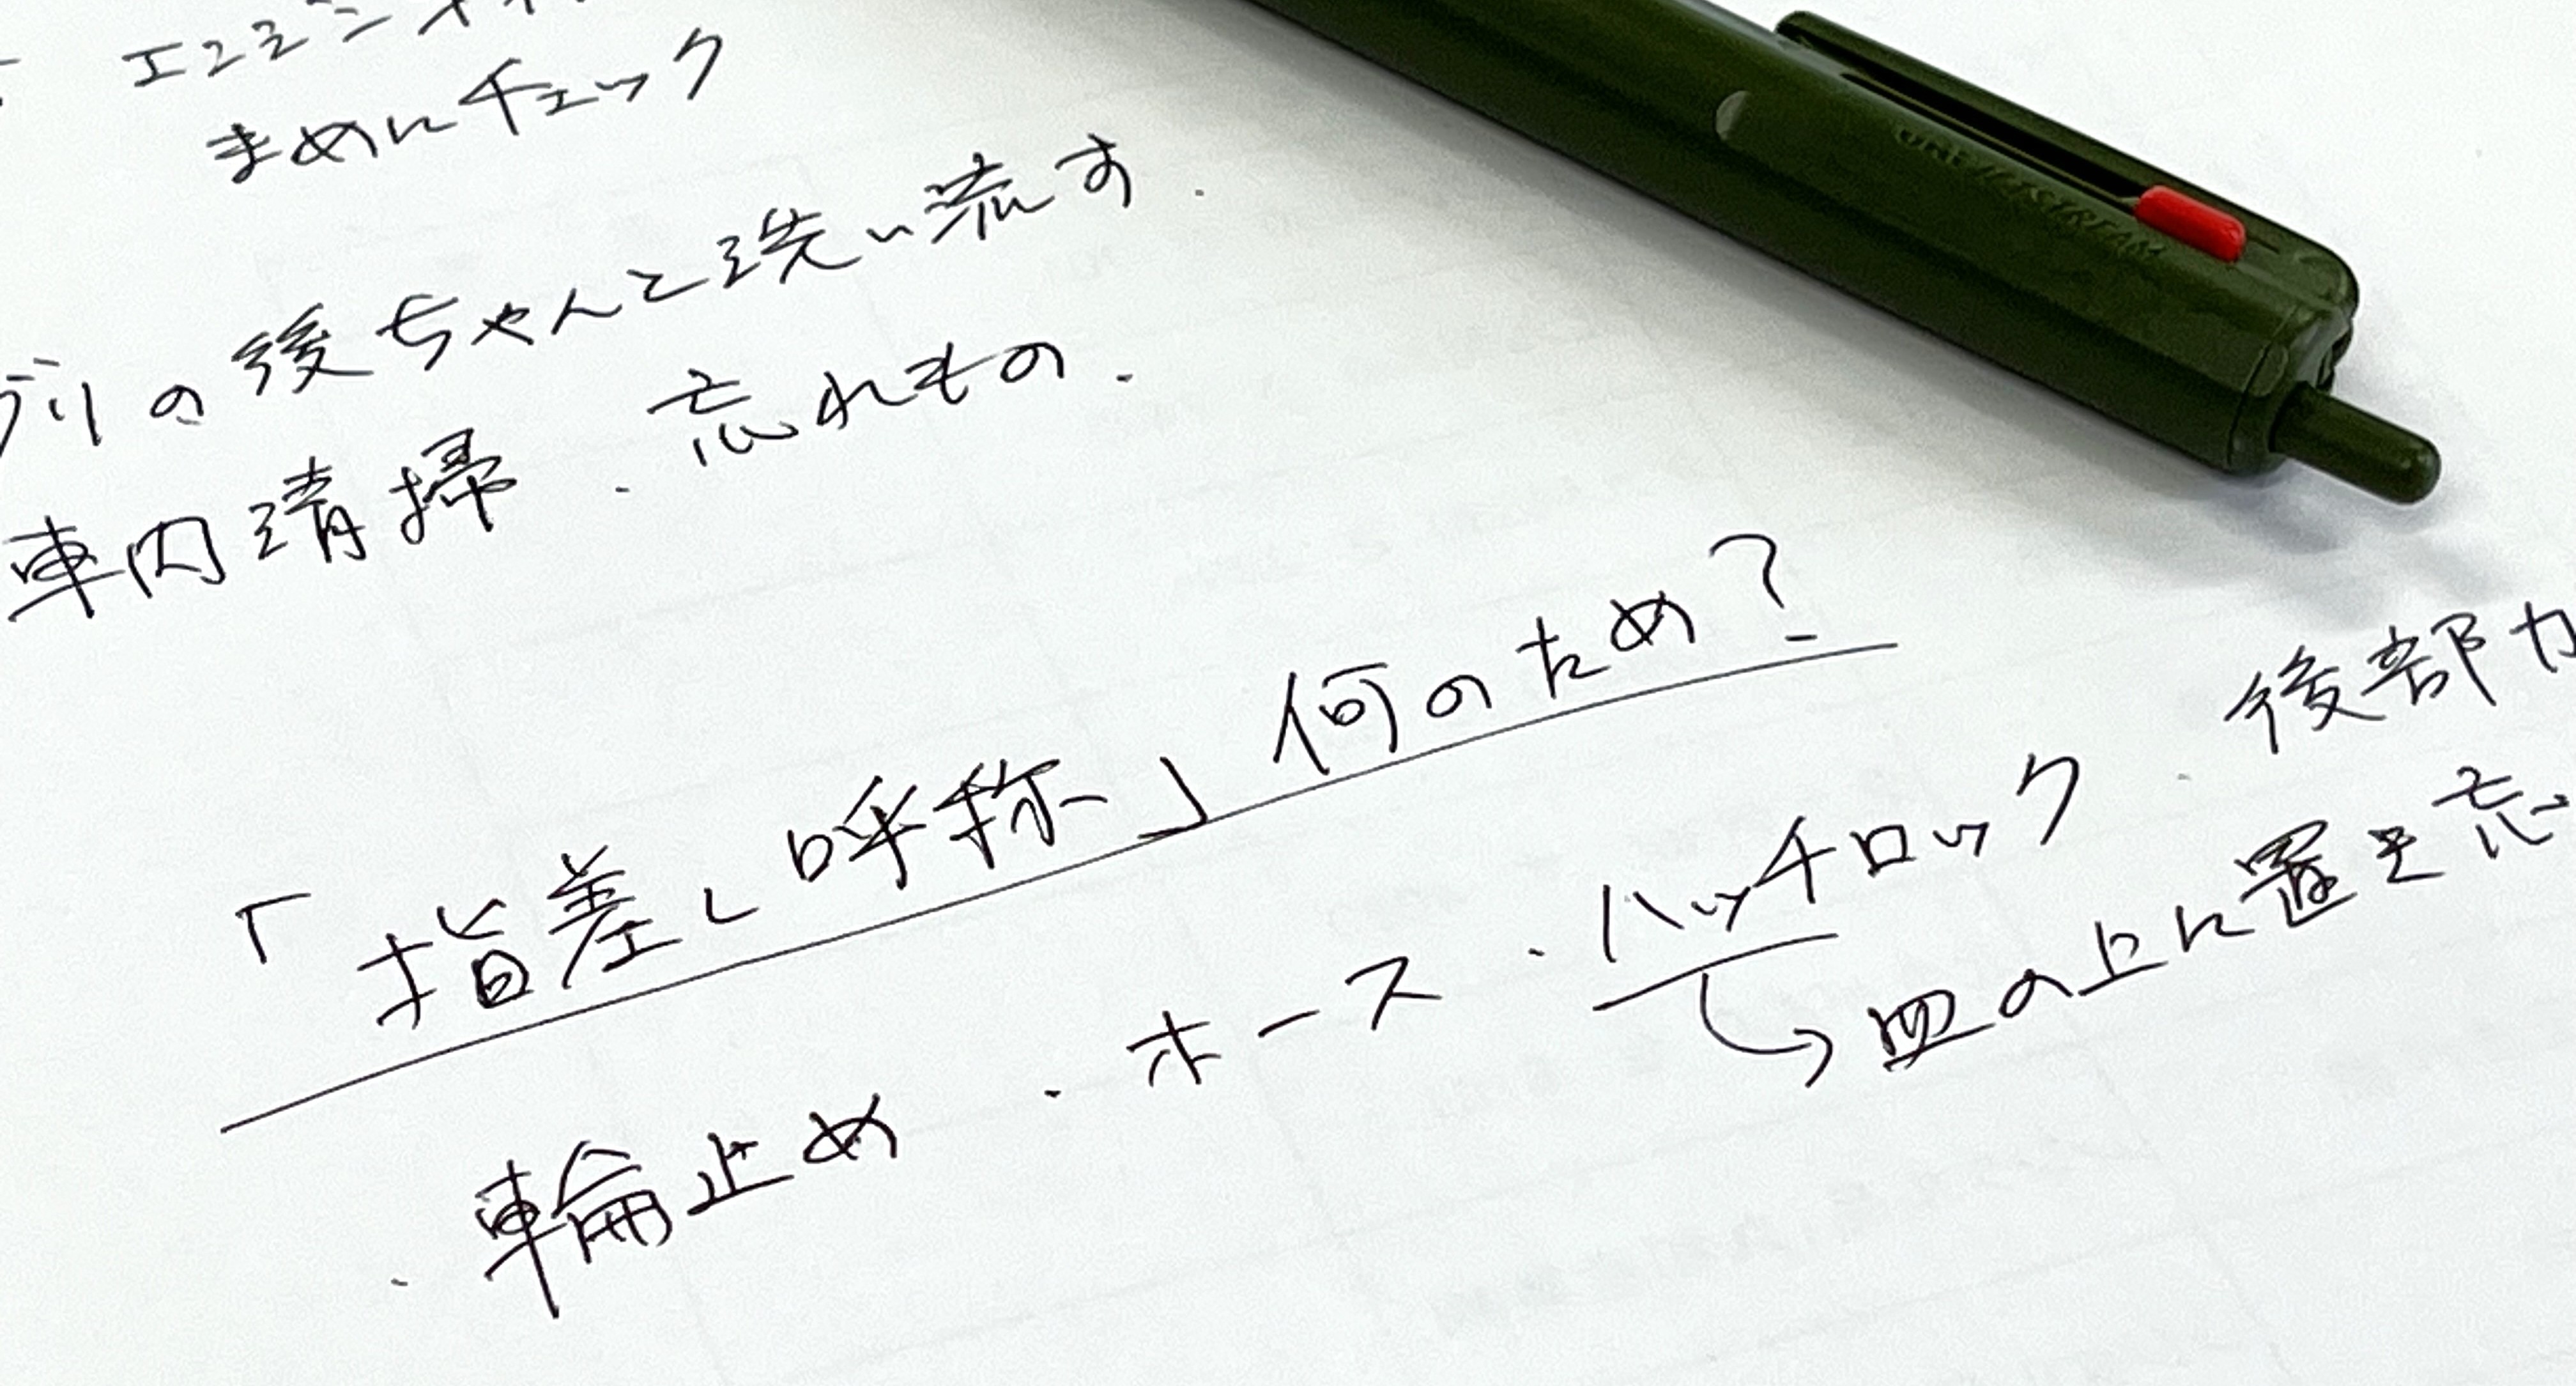 まめにチェック
の後ちゃんと洗い流す.
車内清掃 . 忘れもの.
「指差し呼称」何のため?
. 輪止め . ホース . ハッチロック . 後部
→ 皿の上に置き忘
UNI JETSTREAM